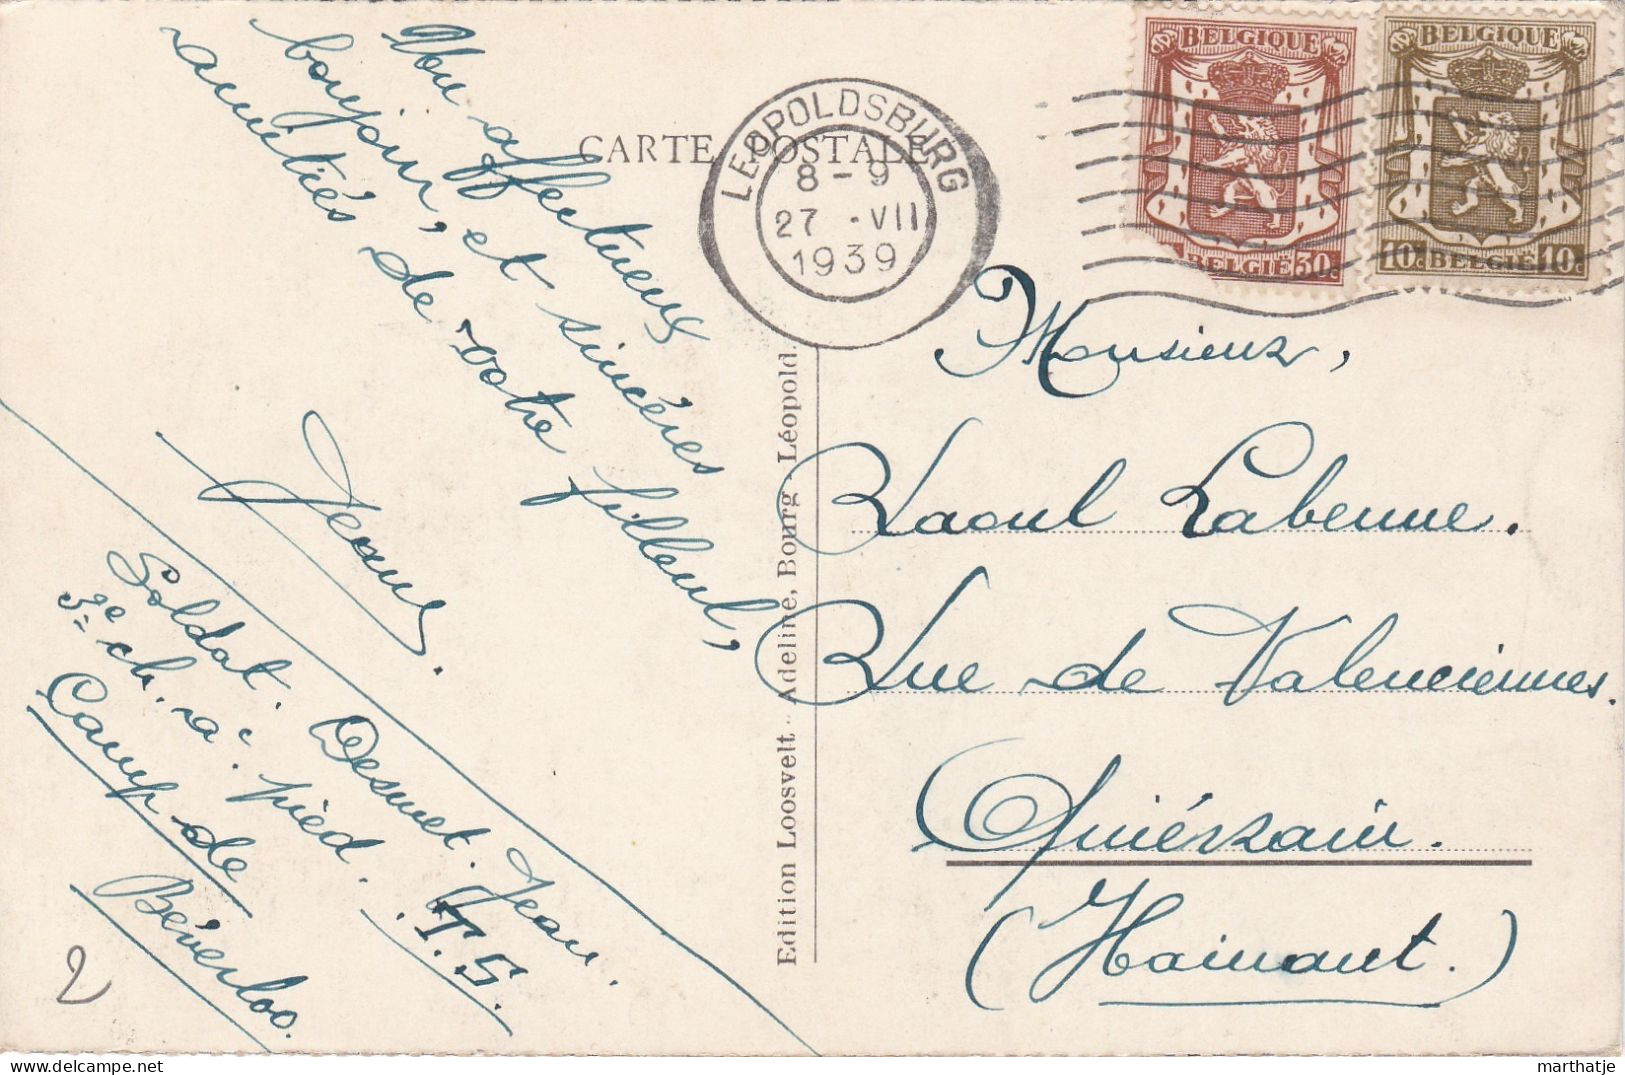 Un affectueux
bonjour, et sincères
amitiés de votre filleul,
Jean.
Soldat. Desmet. Jean.
3e ch. à. pied. T.S.
Camp de
Béverloo.
2
CARTE POSTALE
LEOPOLDSBURG
8-9
27 -VII
1939
BELGIQUE
BELGIE 30c
BELGIQUE
10c BELGIE 10c
Edition Loosvelt - Adeline, Bourg - Léopold.
Monsieur,
Raoul Labenne.
Rue de Valenciennes.
Quiévrain.
(Hainaut.)
delcampe.net
marthatje